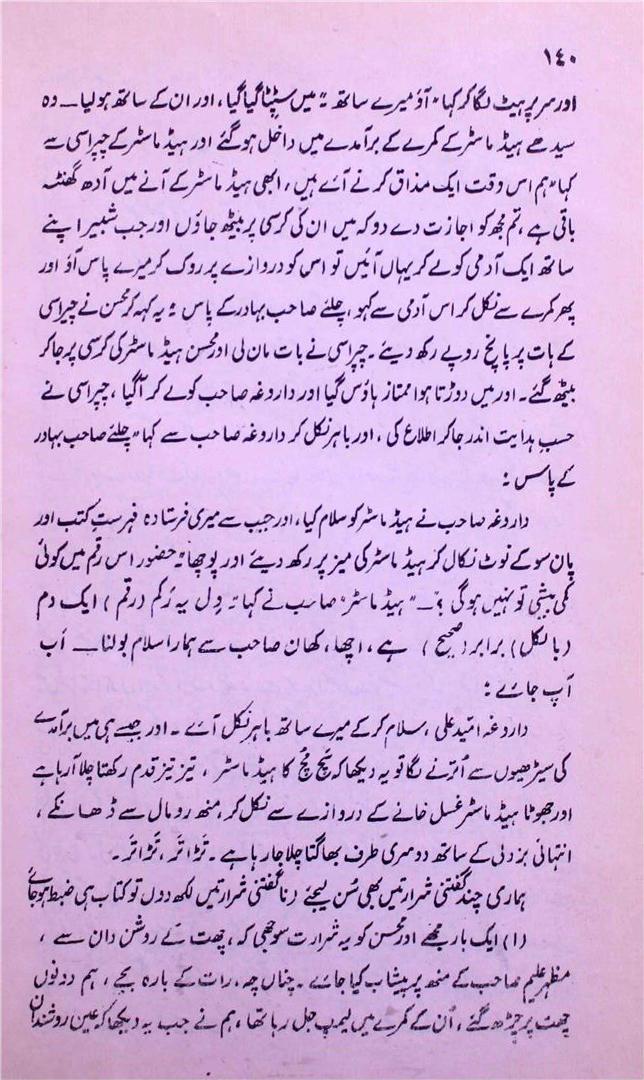 ١٤٠
اور سر پر ہیٹ لگا کر کہا "آؤ میرے ساتھ"۔ میں سٹپٹا گیا گیا، اور ان کے ساتھ ہو لیا ــ وہ
سیدھے ہیڈ ماسٹر کے کمرے کے برآمدے میں داخل ہو گئے اور ہیڈ ماسٹر کے چپراسی سے
کہا "ہم اس وقت ایک مذاق کرنے آئے ہیں، ابھی ہیڈ ماسٹر کے آنے میں آدھ گھنٹہ
باقی ہے، تم مجھ کو اجازت دے دو کہ میں ان کی کرسی پر بیٹھ جاؤں اور جب شبیر اپنے
ساتھ ایک آدمی کو لے کر یہاں آئیں تو اس کو دروازے پر روک کر میرے پاس آؤ اور
پھر کمرے سے نکل کر اس آدمی سے کہو، چلئے صاحب بہادر کے پاس"۔ یہ کہہ کر محسن نے چپراسی
کے ہات پر پانچ روپے رکھ دیئے۔ چپراسی نے بات مان لی اور محسن ہیڈ ماسٹر کی کرسی پر جا کر
بیٹھ گئے۔ اور میں دوڑتا ہوا ممتاز ہاؤس گیا اور داروغہ صاحب کو لے کر آ گیا، چپراسی نے
حسبِ ہدایت اندر جا کر اطلاع کی، اور باہر نکل کر داروغہ صاحب سے کہا "چلئے صاحب بہادر
کے پاس:
داروغہ صاحب نے ہیڈ ماسٹر کو سلام کیا، اور جیب سے میری فرستادہ فہرستِ کتب اور
پان سو کے نوٹ نکال کر ہیڈ ماسٹر کی میز پر رکھ دیئے اور پوچھا "حضور اس رقم میں کوئی
کمی بیشی تو نہیں ہوگی؟" ــ "ہیڈ ماسٹر" صاحب نے کہا "وِل یہ رُکم (رقم) ایک دم
(بالکل) برابر (صحیح) ہے، اچھا، کھان صاحب سے ہمارا سلام بولنا ــ اَب
آپ جائے:
داروغہ امیّد علی، سلام کر کے میرے ساتھ باہر نکل آئے۔ اور جیسے ہی میں برآمدے
کی سیڑھیوں سے اُترنے لگا تو یہ دیکھا کہ سَچ مُچ کا ہیڈ ماسٹر، تیز تیز قدم رکھتا چلا آ رہا ہے
اور جھوٹا ہیڈ ماسٹر غسل خانے کے دروازے سے نکل کر، منھ رومال سے ڈھانکے،
انتہائی بزدلی کے ساتھ دوسری طرف بھاگتا چلا جا رہا ہے۔ تَڑاتَر، تَڑاتَر۔
ہماری چند گفتنی شرارتیں بھی سُن لیجئے (ناگفتنی شرارتیں لکھ دوں تو کتاب ہی ضبط ہو جائے
(۱) ایک بار مجھے اور محسن کو یہ شرارت سوجھی کہ، چھت کے روشن دان سے،
مظہر علیم صاحب کے منھ پر پیشاب کیا جائے۔ چناں چہ، رات کے بارہ بجے، ہم دونوں
چھت پر چڑھ گئے، اُن کے کمرے میں لیمپ جل رہا تھا، ہم نے جب یہ دیکھا کہ عین روشندان